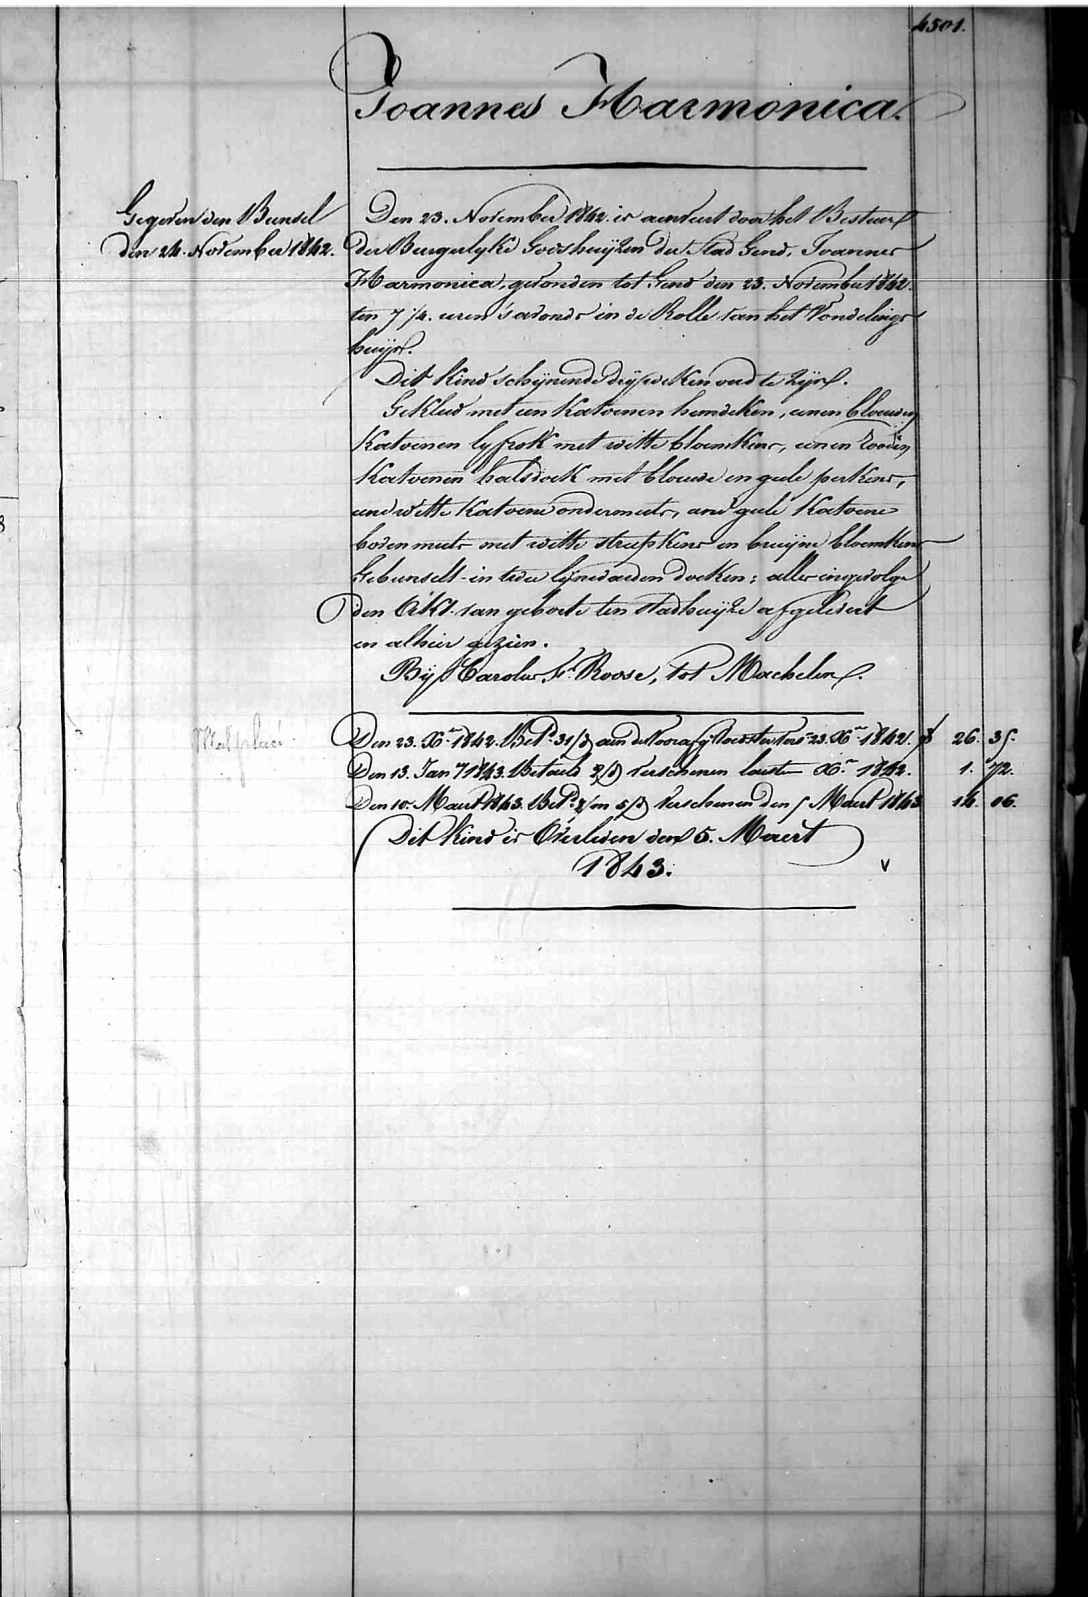 4501.
Joannes Harmonica.
Gegeven den Bunsel
den 24. November 1842.
Den 23. November 1842. is aenveert door het Bestuer
der Burgerlyke Godshuijzen der Stad Gend, Joannes
Harmonica, gevonden tot Gend den 23. November 1842.
ten 7 1/4. uren 's avonds in de Rolle van het Vondelings
huijs.
Dit kind schijnende drij weken oud te zijn.
Gekleed met een katoenen hemdeken, eenen blauwen
katoenen lyfrok met witte bloemkens, eenen rooden
katoenen halsdoek met blauwe en geele perkens,
eene witte katoene ondermuts, ene geele katoene
bovenmuts met witte streepkens en bruijne bloemkens
Gebunselt in twee lijnwaeden doeken; alles ingevolge
den Akt van geboorte ten stadhuijze afgeleverd
en alhier gezien.
Bij Carolus Fs. Roose, tot Machelen.
Den 23. Xber 1842. Betd. 31/d aen de Voorzy Voedster vers. 23. Xber 1842. f 26. 35.
Den 13. Jany 1843. Betaeld 2/d verschenen laeste Xber 1842. 1. 72.
Den 10. Maert 1843. Betd. 2/m 5/d verschenen den 5 Maert 1843 14. 06.
Dit kind is Overleden den 5. Maert
1843.